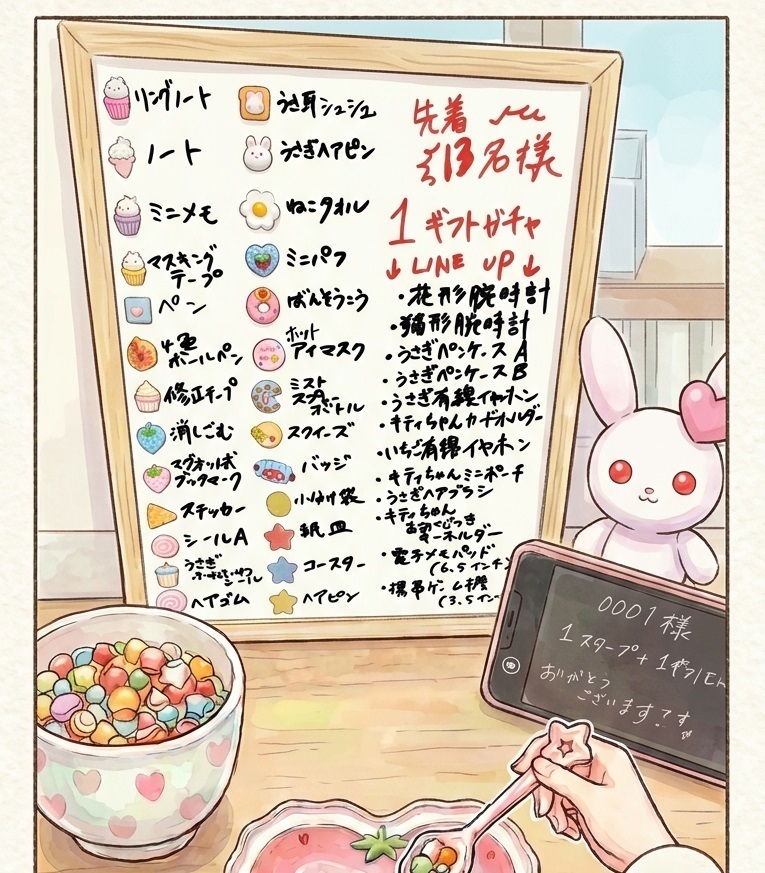 リングノート
ノート
ミニメモ
マスキング
テープ
ペン
4色
ボールペン
修正テープ
消しごむ
マグネットしおり
ブックマーク
ステッカー
シールA
うさぎ
シール
ヘアゴム
うさ耳シュシュ
うさぎヘアピン
ねこタオル
ミニパフ
ばんそうこう
ホット
アイマスク
ミスト
スプレー
ボトル
スクイーズ
バッジ
小分け袋
紙皿
コースター
ヘアピン
先着
13名様
1 ギフトガチャ
↓ LINE UP ↓
・花形腕時計
・猫形腕時計
・うさぎペンケース A
・うさぎペンケース B
・うさぎ有線イヤホン
・キティちゃんカードホルダー
・いちご有線イヤホン
・キティちゃんミニポーチ
・うさぎヘアブラシ
・キティちゃん
キーホルダー
・電子メモパッド
(6.5インチ)
・携帯ゲーム機
(3.5イン
0001様
1スタープ+1
ありがとう
ございます